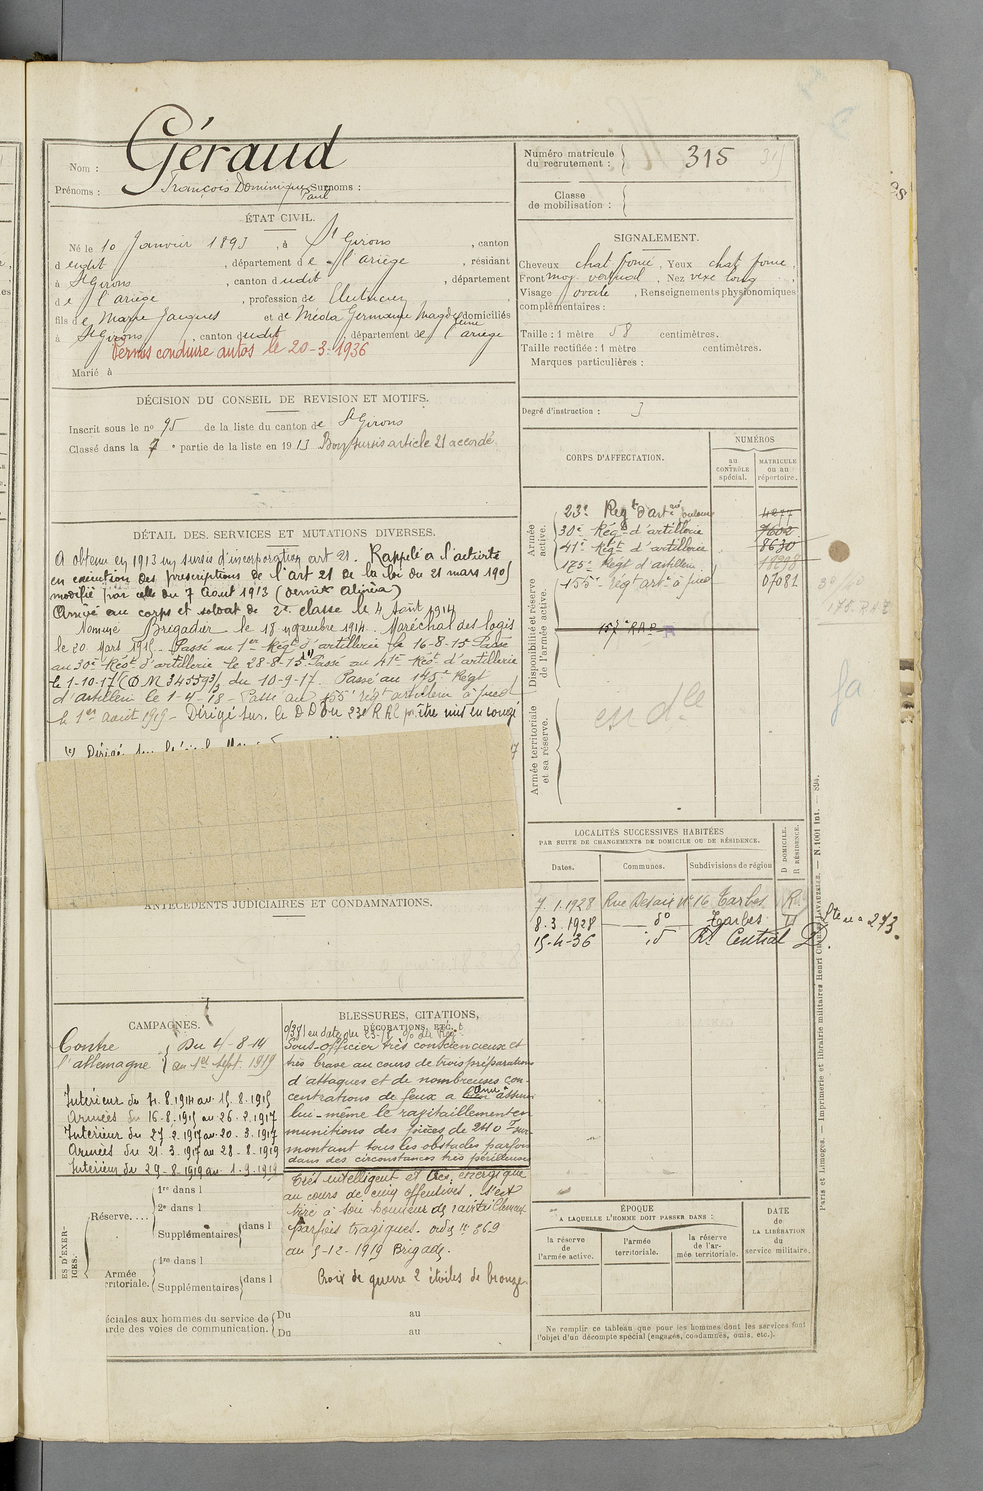 Nom : Géraud
Prénoms : François Dominique Paul Surnoms :
ÉTAT CIVIL.
Né le 10 Janvier 1893, à St Girons, canton
dudit, département de l'ariège, résidant
à St Girons, canton dudit, département
de l'ariège, profession de
fils de Marie Jacques et de Méda Germaine Magdeleine domiciliés
à St Girons canton dudit département de l'ariège
Permis conduire autos le 20-3-1936
Marié à
DÉCISION DU CONSEIL DE REVISION ET MOTIFS.
Inscrit sous le no 95 de la liste du canton de St Girons
Classé dans la 7e partie de la liste en 1913 Bon sursis article 21 accordé
DÉTAIL DES SERVICES ET MUTATIONS DIVERSES.
A obtenu en 1913 un sursis d'incorporation art 21. Rappelé à l'activité
en exécution des prescriptions de l'art 21 de la loi du 21 mars 1905
modifié par celle du 7 Aout 1913 (dernier alinéa)
Arrivé au corps et soldat de 2e classe le 4 Août 1914
Nommé Brigadier le 18 novembre 1914. Maréchal des logis
le 20 Mars 1915. Passé au 1er Régt d'artillerie le 16-8-15 Passé
au 30e Régt d'artillerie le 28-8-15 (1) Passé au 41e Régt d'artillerie
le 1-10-17 (DM 345593/3 du 10-9-17. Passé au 175e Régt
d'artillerie le 1-4-18 - Passé au 155e régt artillerie à pied
le 1er août 1919 - Dirigé sur le DD du 23e RAC pr être mis en congé
(1) Dirigé sur
ANTÉCÉDENTS JUDICIAIRES ET CONDAMNATIONS.
CAMPAGNES.
Contre l'allemagne } Du 4-8-14
au 1er Sept. 1919
Intérieur du 4.8.1914 au 15.8.1915
Armées du 16-8.1915 au 26.2.1917
Intérieur du 27.2.1917 au 20.3.1917
Armées du 21.3.1917 au 28-8-1919
Intérieur du 29-8-1919 au 1-9-1919
BLESSURES, CITATIONS,
DÉCORATIONS, ETC.
Sous-officier très consciencieux et
très brave au cours de trois préparations
d'attaques et de nombreuses con-
centrations de feux a bien assuré
lui-même le ravitaillement en
munitions des pièces de 240 T sur-
montant tous les obstacles parfois
dans des circonstances très périlleuses
Très intelligent et très énergique
au cours de cinq offensives. S'est
tiré à son honneur de
parfois tragiques. ordre no 869
au 5-12-1919 Brigade.
Croix de guerre 2 étoiles de bronze
ES D'EXER-
ICES.
Réserve....
1re dans l
2e dans l
Supplémentaires dans l
Armée
rritoriale.
1re dans l
Supplémentaires dans l
éciales aux hommes du service de
arde des voies de communication.
Du au
Du au
Numéro matricule
du recrutement : 315
Classe
de mobilisation :
SIGNALEMENT.
Cheveux chat foncé, Yeux chat foncé,
Front moy. vertical, Nez vexe long,
Visage ovale, Renseignements physionomiques
complémentaires :
Taille : 1 mètre 58 centimètres.
Taille rectifiée : 1 mètre centimètres.
Marques particulières :
Degré d'instruction : 3
CORPS D'AFFECTATION.
NUMÉROS
au
CONTRÔLE
spécial.
MATRICULE
ou au
répertoire.
Armée
active.
23e Régt d'artie Toulouse
30e Régt d'artillerie 7602
41e Régt d'artillerie 8630
175e Régt d'artillerie
155e régt artie à pied 07081
Disponibilité et réserve
de l'armée active.
Armée territoriale
et sa réserve.
LOCALITÉS SUCCESSIVES HABITÉES
PAR SUITE DE CHANGEMENTS DE DOMICILE OU DE RÉSIDENCE.
Dates.
Communes.
Subdivisions de région
D DOMICILE.
R RÉSIDENCE.
7.1.1928 Rue Desaix no 16 Tarbes R
8.3.1928 do Tarbes D
15-4-36 id Rt Central D.
ÉPOQUE
A LAQUELLE L'HOMME DOIT PASSER DANS :
la réserve
de
l'armée active.
l'armée
territoriale.
la réserve
de l'ar-
mée territoriale.
DATE
de
LA LIBÉRATION
du
service militaire.
Ne remplir ce tableau que pour les hommes dont les services font
l'objet d'un décompte spécial (engagés, condamnés, omis, etc.).
Paris et Limoges. — Imprimerie et librairie militaires Henri CHARLES-LAVAUZELLE. — N. 1001 int. — 894.